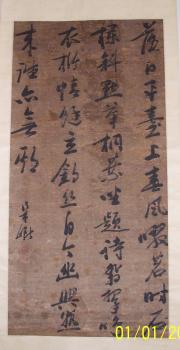 落日平臺上春風啜茗時石
欄斜點筆桐葉坐題詩翡翠鳴
衣桁蜻蜓立釣絲自今幽興熟
來亦無期
01/01/